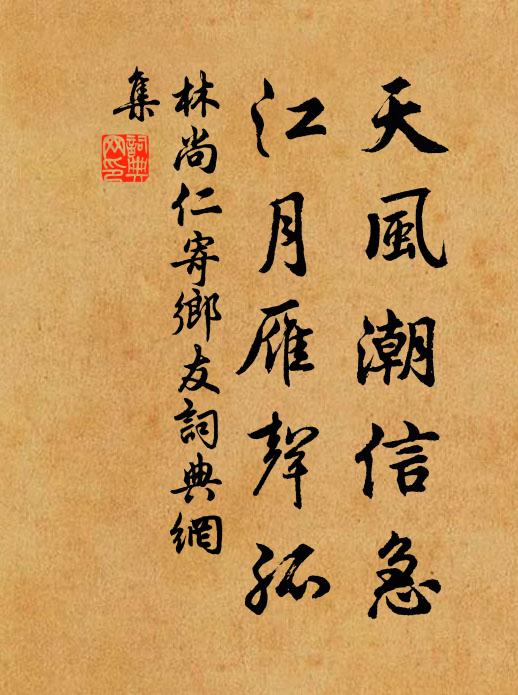 天風潮信急
江月雁聲孤
林尚仁寄鄉友詞典網
集
詞典网印